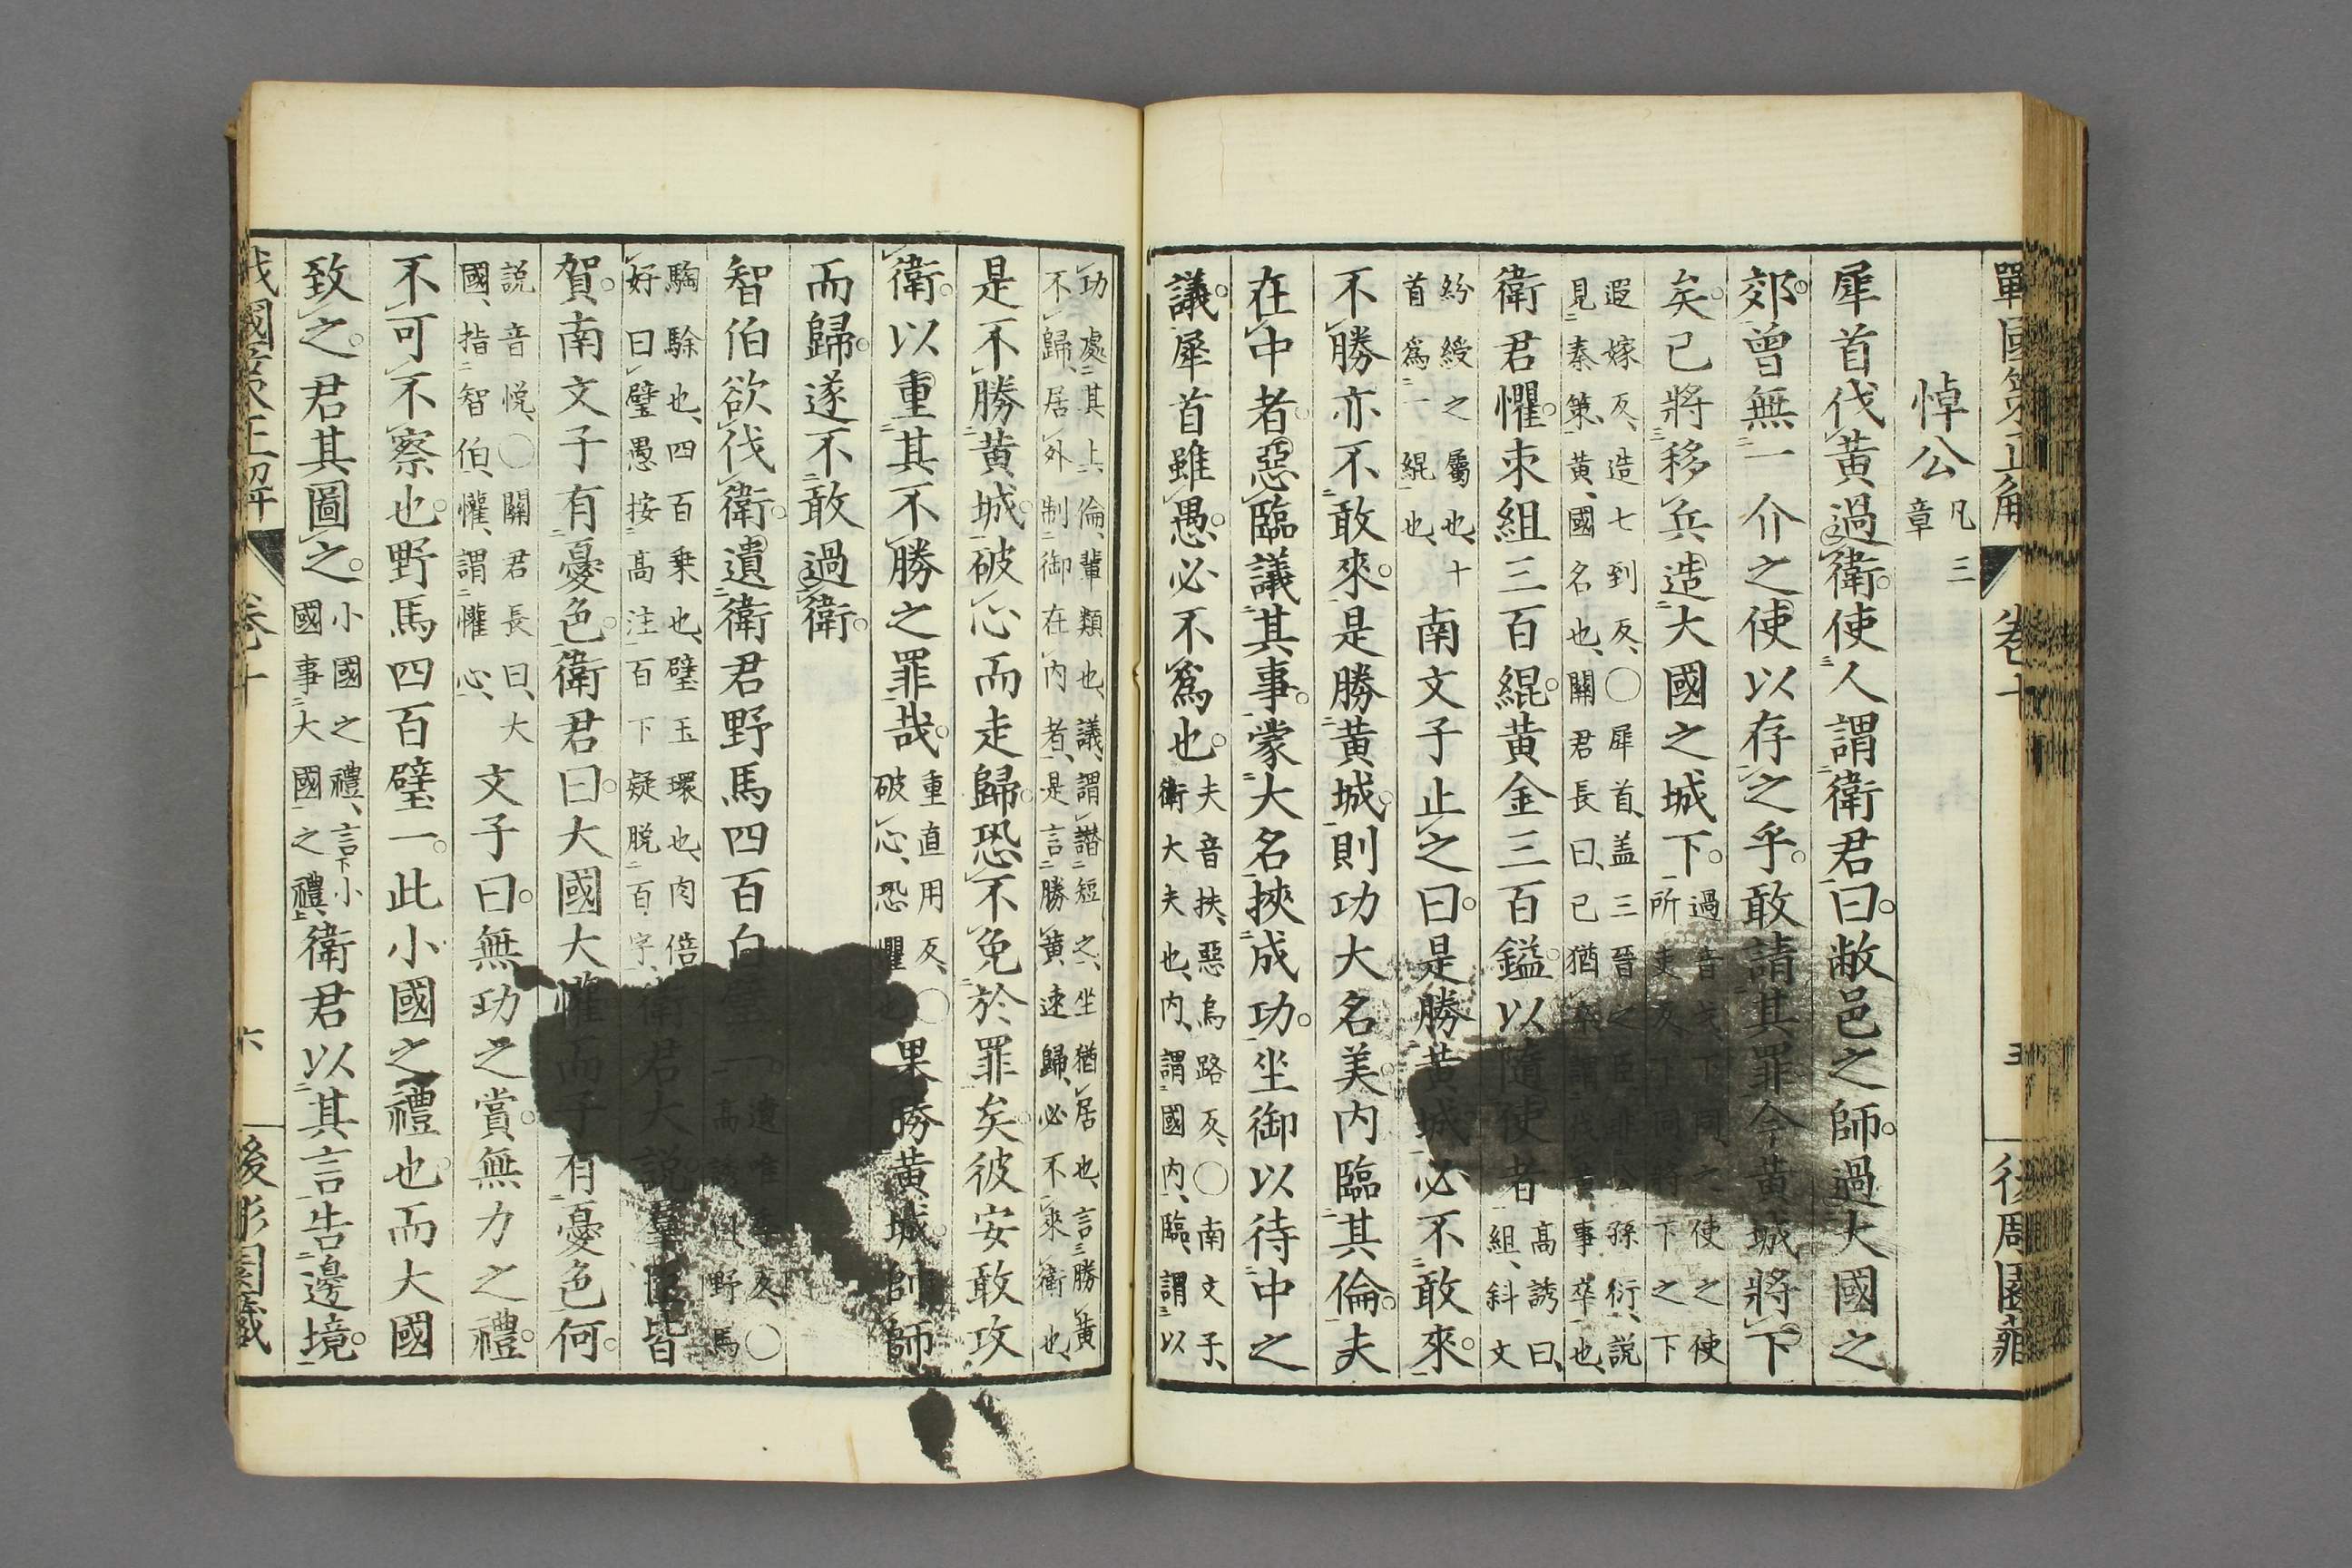 戰國策正解 卷十 五
悼公 凡三章
犀首伐黃過衛。使人謂衛君曰。敝邑之師。過大國之
郊。曾無一介之使以存之乎。敢請其罪今黃城將下
矣。已將移兵造大國之城下。過音戈下同之使之使
所吏反下同將下之下
遐嫁反、造七到反、〇犀首、盖三晉之臣公孫衍、說
見秦策、黃、國名也、關君長曰、已猶卒謂伐黃事卒也、
衛君懼。束組三百緄。黃金三百鎰。以隨使者 高誘曰、
組、斜文
紛綬之屬也、十
首爲一緄也、
南文子止之曰。是勝黃城。必不敢來。
不勝亦不敢來。是勝黃城。則功大名美。内臨其倫。夫
在中者。惡臨議其事。蒙大名挾成功。坐御以待中之
議。犀首雖愚。必不爲也。 夫音扶、惡烏路反、〇南文子、
衛大夫也、内、謂國内、臨、謂以
功處其上、倫、輩類也、議、謂譖短之、坐猶居也、言勝黃
不歸、居外制御在内者、是言勝黃速歸、必不來衛也、
是不勝黃城。破心而走歸。恐不免於罪矣。彼安敢攻
衛。以重其不勝之罪哉。 重直用反、〇
破心、恐懼也、
果勝黃城。帥師
而歸。遂不敢過衛。
智伯欲伐衛。遺衛君野馬四百白璧一。 遺唯季反、〇
高誘曰野馬
騊駼也、四百乗也、璧玉環也、肉倍
好曰璧愚按高注百下疑脱百字、
衛君大說。羣臣皆
賀。南文子有憂色。衛君曰。大國大懽。而子有憂色何。
說音悦、〇關君長曰、大
國、指智伯、懽、謂懽心、
文子曰。無功之賞。無力之禮。
不可不察也。野馬四百璧一。此小國之禮也。而大國
致之。君其圖之。 小國之禮、言下小
國事大國之禮上、
衛君以其言告邊境。
卷十 六